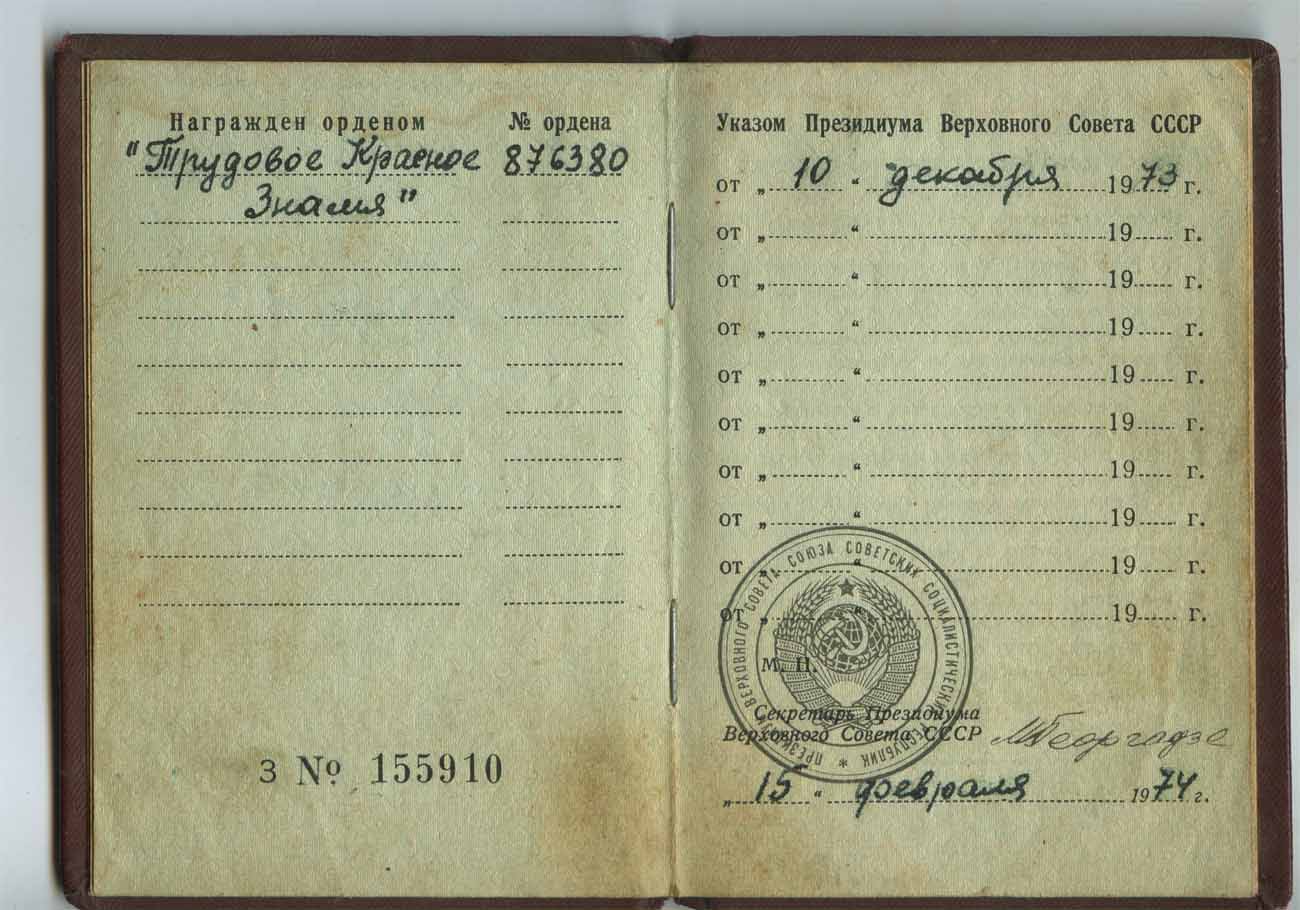 Награжден орденом
№ ордена
"Трудовое Красное
876380
Знамя"
З № 155910
Указом Президиума Верховного Совета СССР
от „ 10 “ декабря 1973 г.
от „ “ 19 г.
от „ “ 19 г.
от „ “ 19 г.
от „ “ 19 г.
от „ “ 19 г.
от „ “ 19 г.
от „ “ 19 г.
от „ “ 19 г.
от „ “ 19 г.
ПРЕЗИДИУМ ВЕРХОВНОГО СОВЕТА СОЮЗА СОВЕТСКИХ СОЦИАЛИСТИЧЕСКИХ РЕСПУБЛИК *
М. П.
Секретарь Президиума
Верховного Совета СССР
МГеоргадзе
„ 15 “ февраля 1974 г.